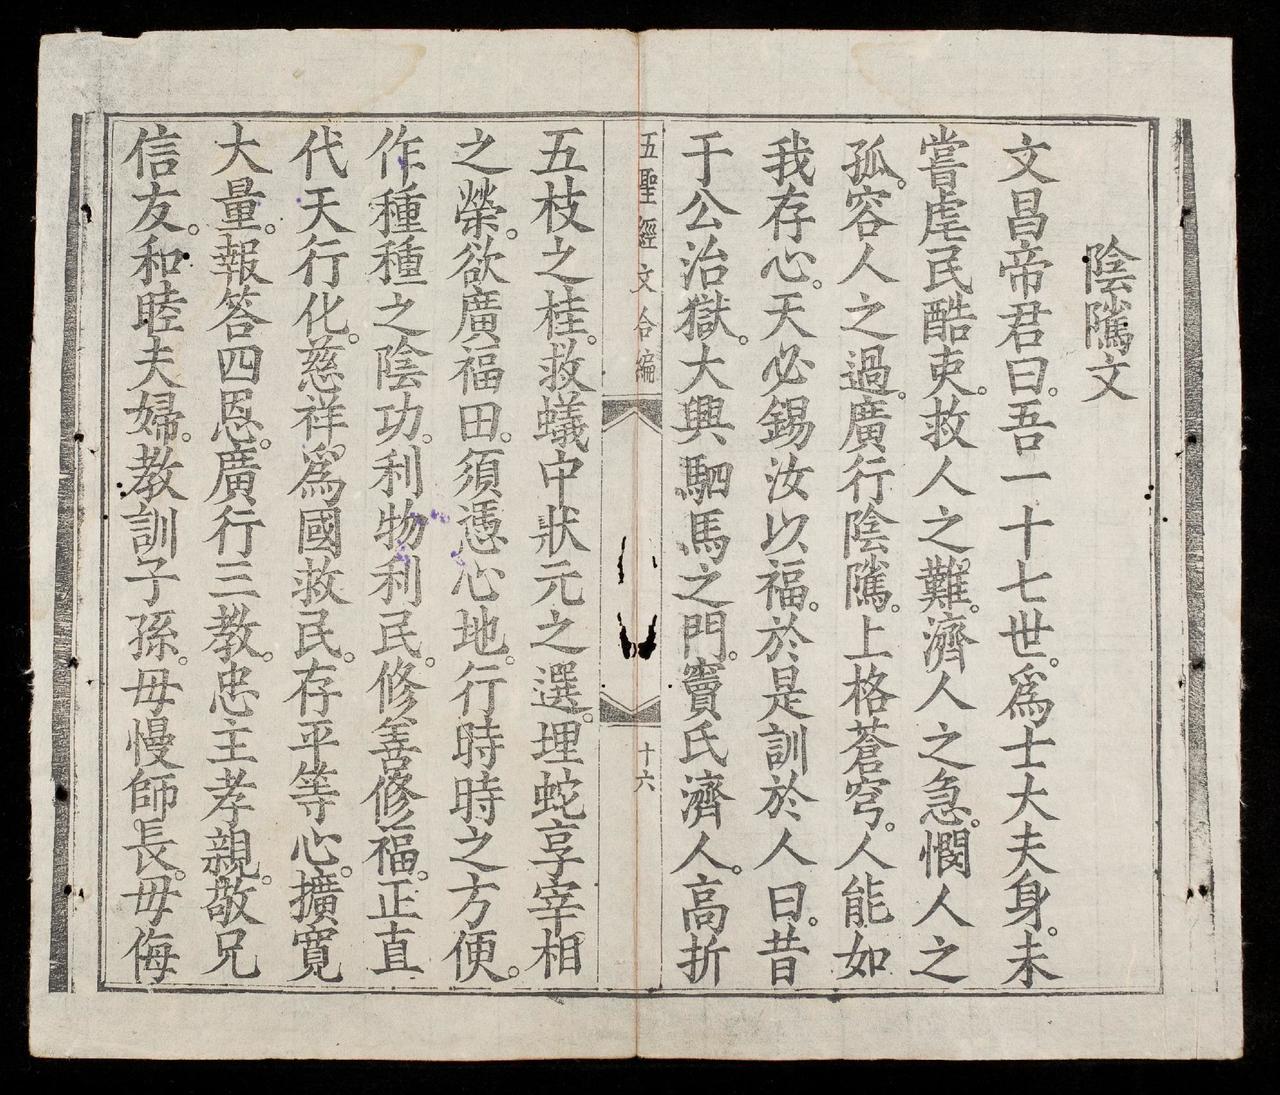 陰隲文
文昌帝君曰。吾一十七世。爲士大夫身。未
嘗虐民酷吏。救人之難。濟人之急。憫人之
孤。容人之過。廣行陰隲。上格蒼穹。人能如
我存心。天必錫汝以福。於是訓於人曰。昔
于公治獄。大興駟馬之門。竇氏濟人。高折
五聖經文合編
十六
五枝之桂。救蟻中狀元之選。埋蛇享宰相
之榮。欲廣福田。須憑心地。行時時之方便。
作種種之陰功。利物利民。修善修福。正直
代天行化。慈祥。爲國救民。存平等心。擴寬
大量。報答四恩。廣行三教。忠主孝親。敬兄
信友。和睦夫婦。教訓子孫。毋慢師長。毋侮